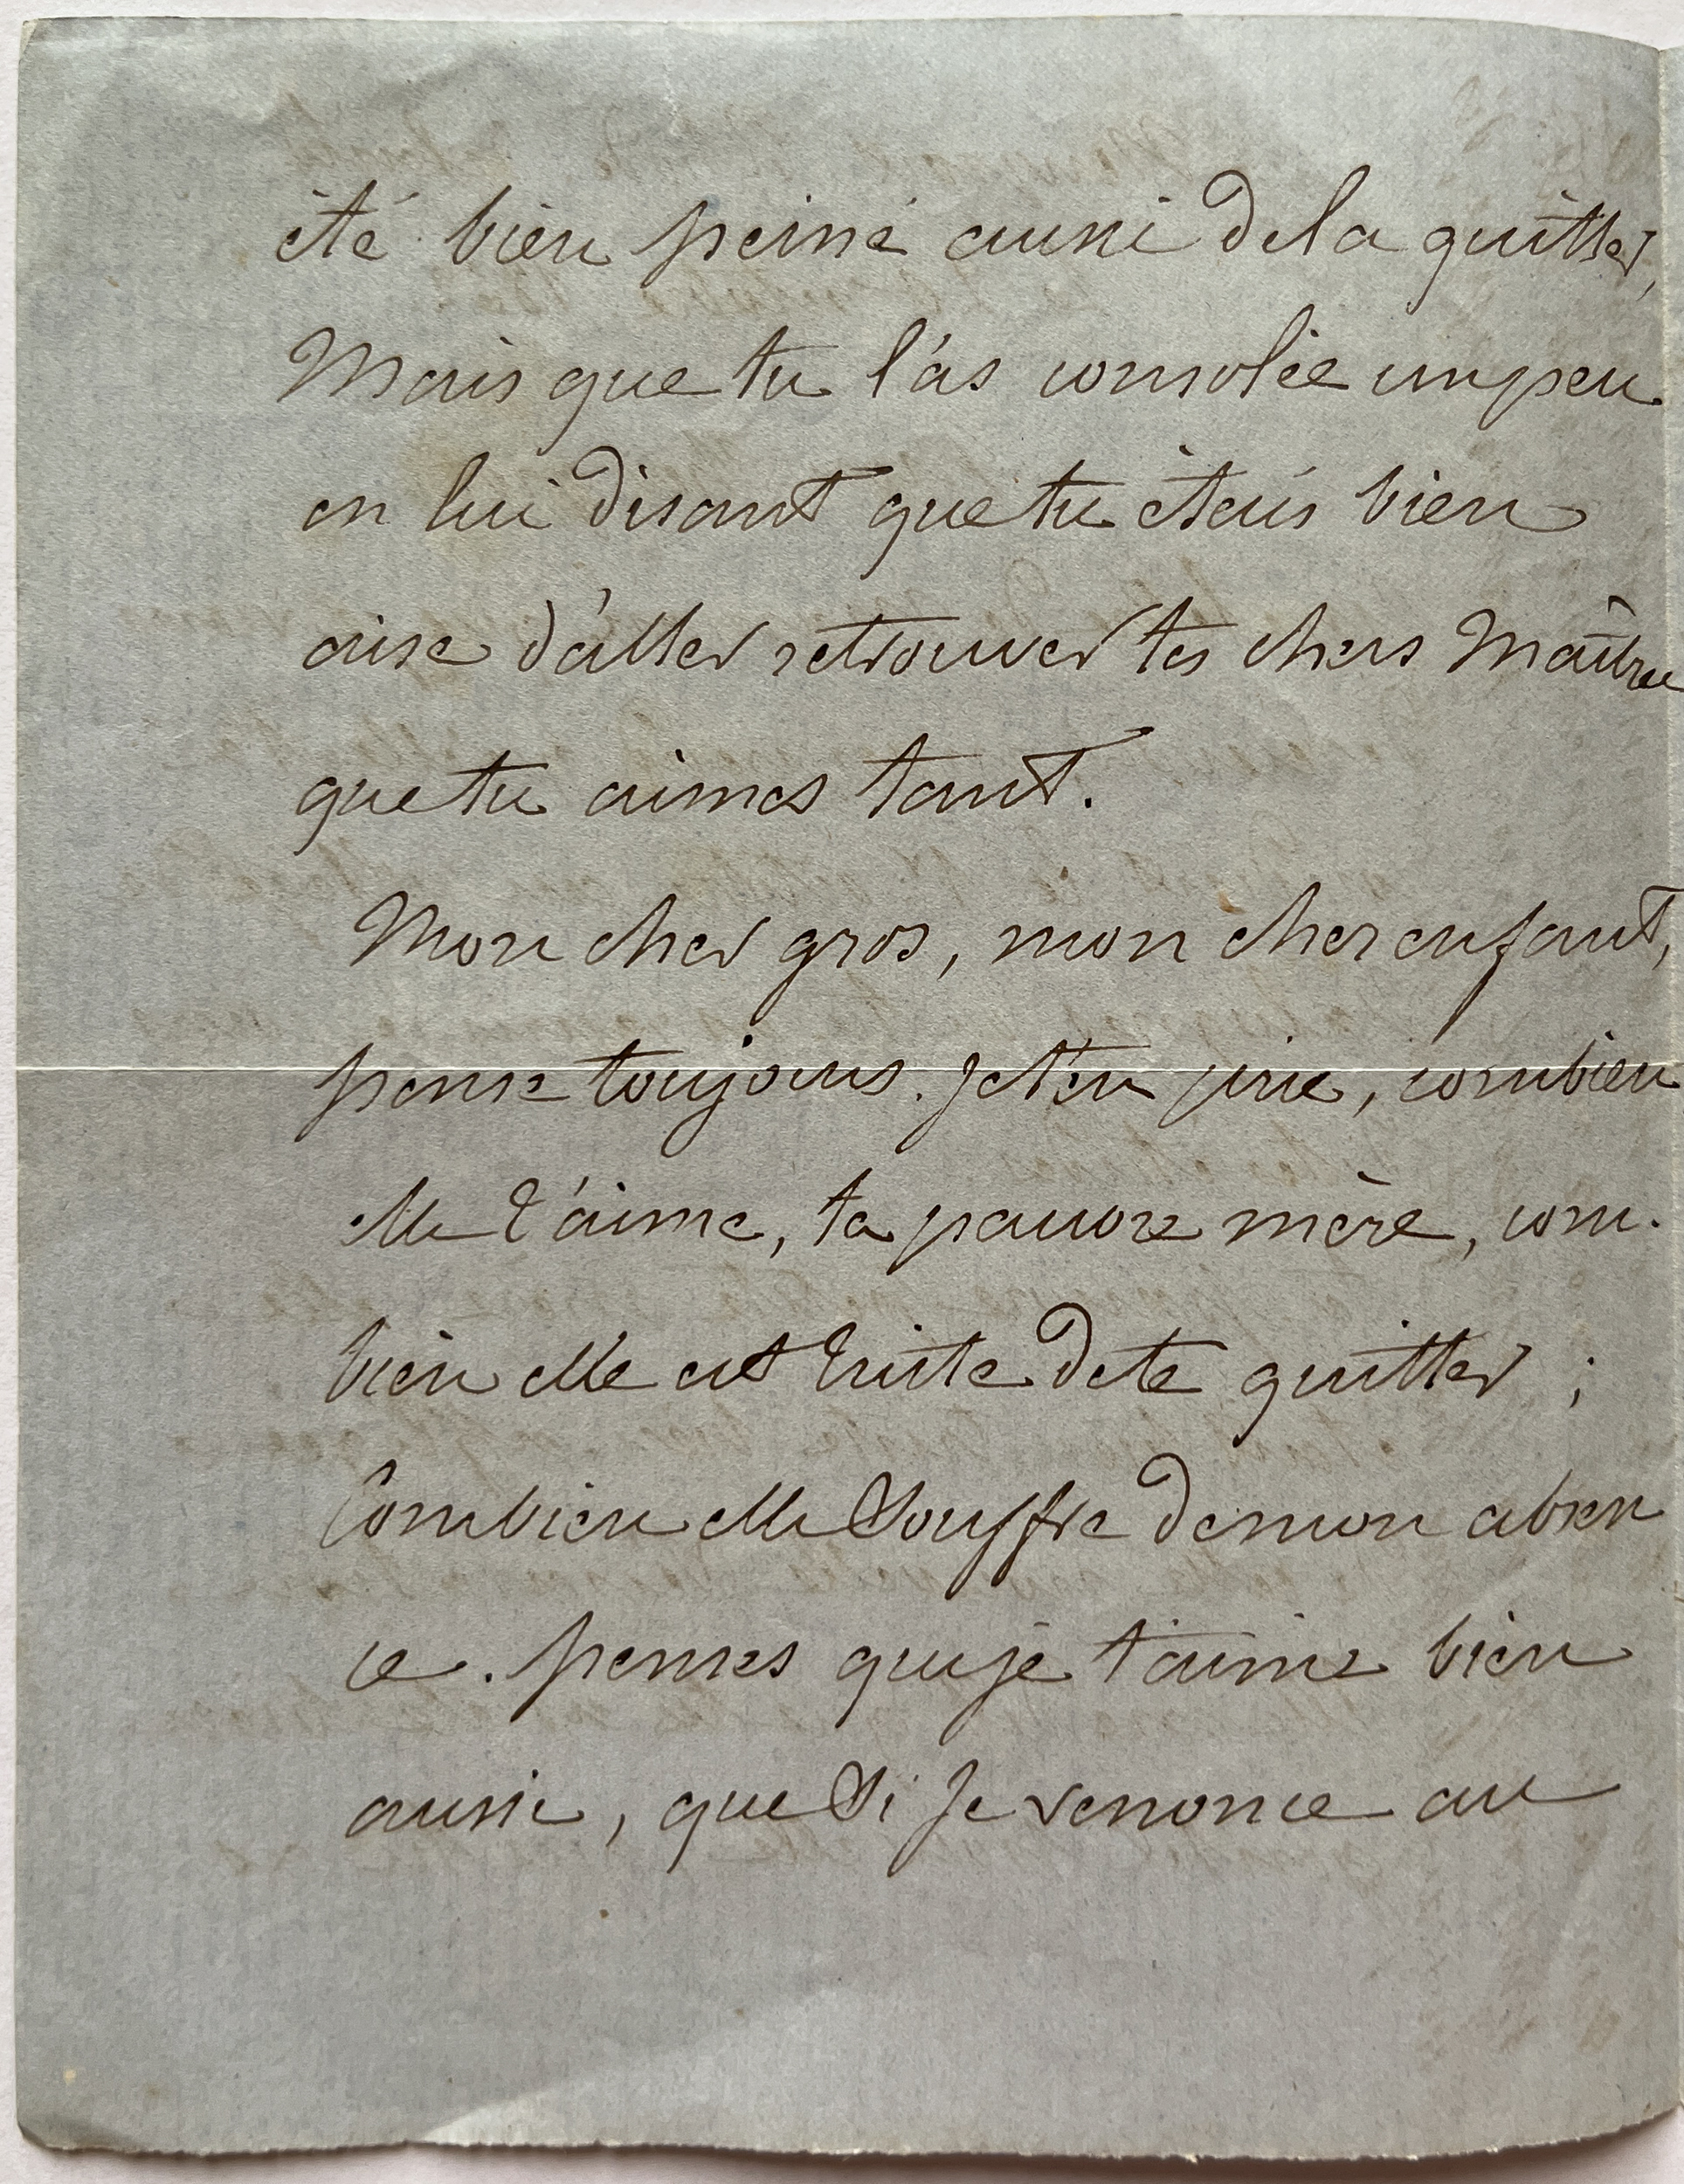 été bien peiné aussi de la quitter,
Mais que tu l'as consolée un peu
en lui disant que tu étais bien
aise d'aller retrouver tes chers Maîtres
que tu aimes tant.
Mon cher gros, mon cher enfant,
pense toujours. Je t'en prie, combien
elle t'aime, ta pauvre mère, com-
bien elle est triste de te quitter ;
Combien elle Souffre de mon absen
ce. penses que je t'aime bien
aussi, que Si Je renonce au